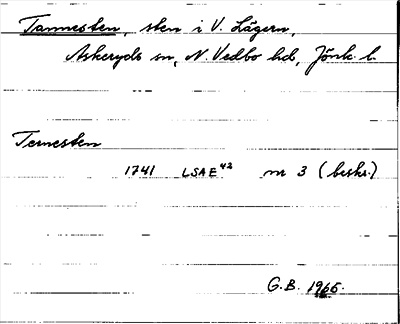 Tannesten, sten i V. Lägern,
Askeryds sn, N. Vedbo hd, Jönk. l.
Temesten
1741 LSAE 42 nr 3 (beskr.)
G.B. 1965.